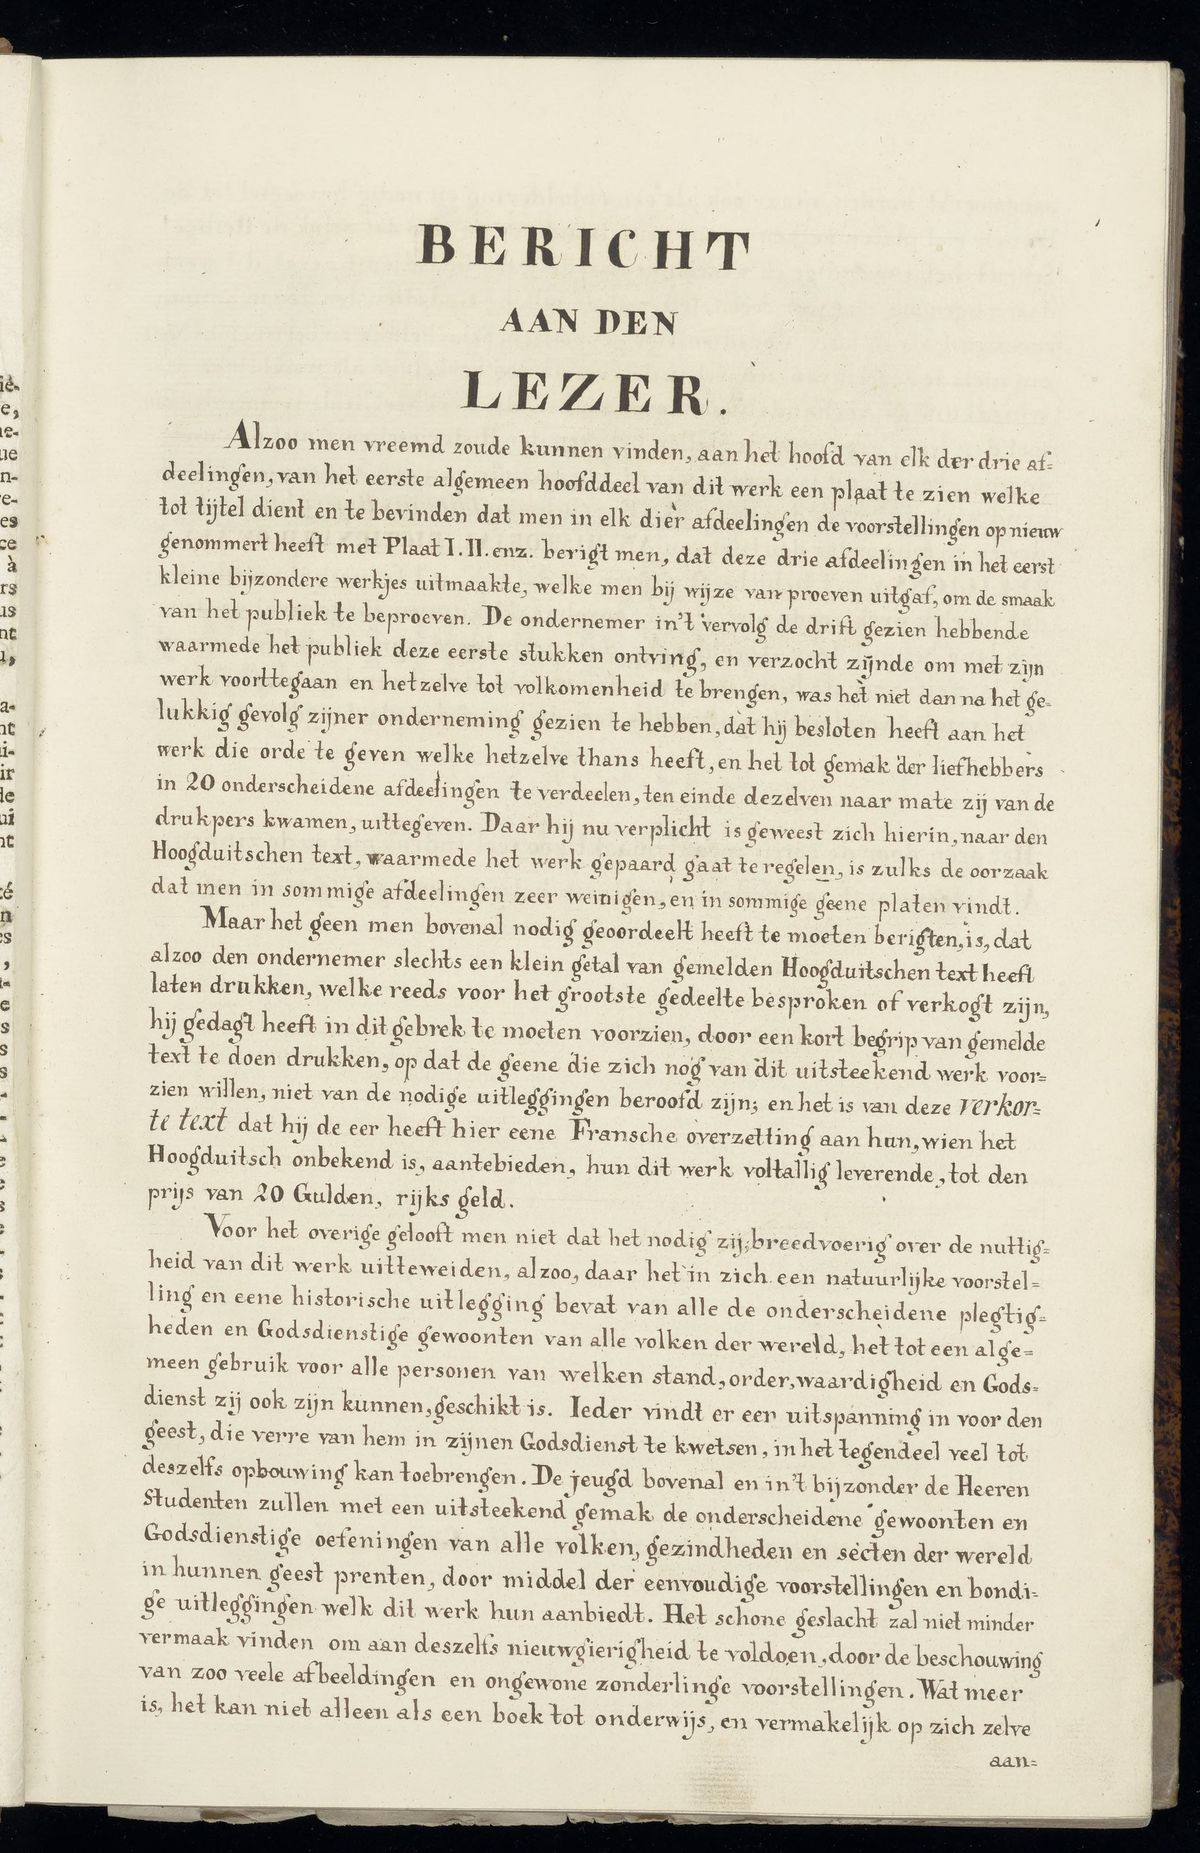 BERICHT
AAN DEN
LEZER.
Alzoo men vreemd zoude kunnen vinden, aan het hoofd van elk der drie af=
deelingen, van het eerste algemeen hoofddeel van dit werk een plaat te zien welke
tot tijtel dient en te bevinden dat men in elk dier afdeelingen de voorstellingen op nieuw
genommert heeft met Plaat I. II. enz. berigt men, dat deze drie afdeelingen in het eerst
kleine bijzondere werkjes uitmaakte, welke men bij wijze van proeven uitgaf, om de smaak
van het publiek te beproeven. De ondernemer in't vervolg de drift gezien hebbende
waarmede het publiek deze eerste stukken ontving, en verzocht zijnde om met zijn
werk voorttegaan en hetzelve tot volkomenheid te brengen, was het niet dan na het ge=
lukkig gevolg zijner onderneming gezien te hebben, dat hij besloten heeft aan het
werk die orde te geven welke hetzelve thans heeft, en het tot gemak der liefhebbers
in 20 onderscheidene afdeelingen te verdeelen, ten einde dezelven naar mate zij van de
drukpers kwamen, uittegeven. Daar hij nu verplicht is geweest zich hierin, naar den
Hoogduitschen text, waarmede het werk gepaard gaat te regelen, is zulks de oorzaak
dat men in sommige afdeelingen zeer weinigen, en in sommige geene platen vindt.
Maar het geen men bovenal nodig geoordeelt heeft te moeten berigten, is, dat
alzoo den ondernemer slechts een klein getal van gemelden Hoogduitschen text heeft
laten drukken, welke reeds voor het grootste gedeelte besproken of verkogt zijn,
hij gedagt heeft in dit gebrek te moeten voorzien, door een kort begrip van gemelde
text te doen drukken, op dat de geene die zich nog van dit uitsteekend werk voor=
zien willen, niet van de nodige uitleggingen beroofd zijn; en het is van deze verkor=
te text dat hij de eer heeft hier eene Fransche overzetting aan hun, wien het
Hoogduitsch onbekend is, aantebieden, hun dit werk voltallig leverende, tot den
prijs van 20 Gulden, rijks geld.
Voor het overige gelooft men niet dat het nodig zij, breedvoerig over de nuttig=
heid van dit werk uitteweiden, alzoo, daar het in zich een natuurlijke voorstel=
ling en eene historische uitlegging bevat van alle de onderscheidene plegtig=
heden en Godsdienstige gewoonten van alle volken der wereld, het tot een alge=
meen gebruik voor alle personen van welken stand, order, waardigheid en Gods=
dienst zij ook zijn kunnen, geschikt is. Ieder vindt er eer uitspanning in voor den
geest, die verre van hem in zijnen Godsdienst te kwetsen, in het tegendeel veel tot
deszelfs opbouwing kan toebrengen. De jeugd bovenal en in't bijzonder de Heeren
Studenten zullen met een uitsteekend gemak de onderscheidene gewoonten en
Godsdienstige oefeningen van alle volken, gezindheden en secten der wereld
in hunnen geest prenten, door middel der eenvoudige voorstellingen en bondi=
ge uitleggingen welk dit werk hun aanbiedt. Het schone geslacht zal niet minder
vermaak vinden om aan deszelfs nieuwgierigheid te voldoen, door de beschouwing
van zoo veele afbeeldingen en ongewone zonderlinge voorstellingen. Wat meer
is, het kan niet alleen als een boek tot onderwijs, en vermakelijk op zich zelve
aan=